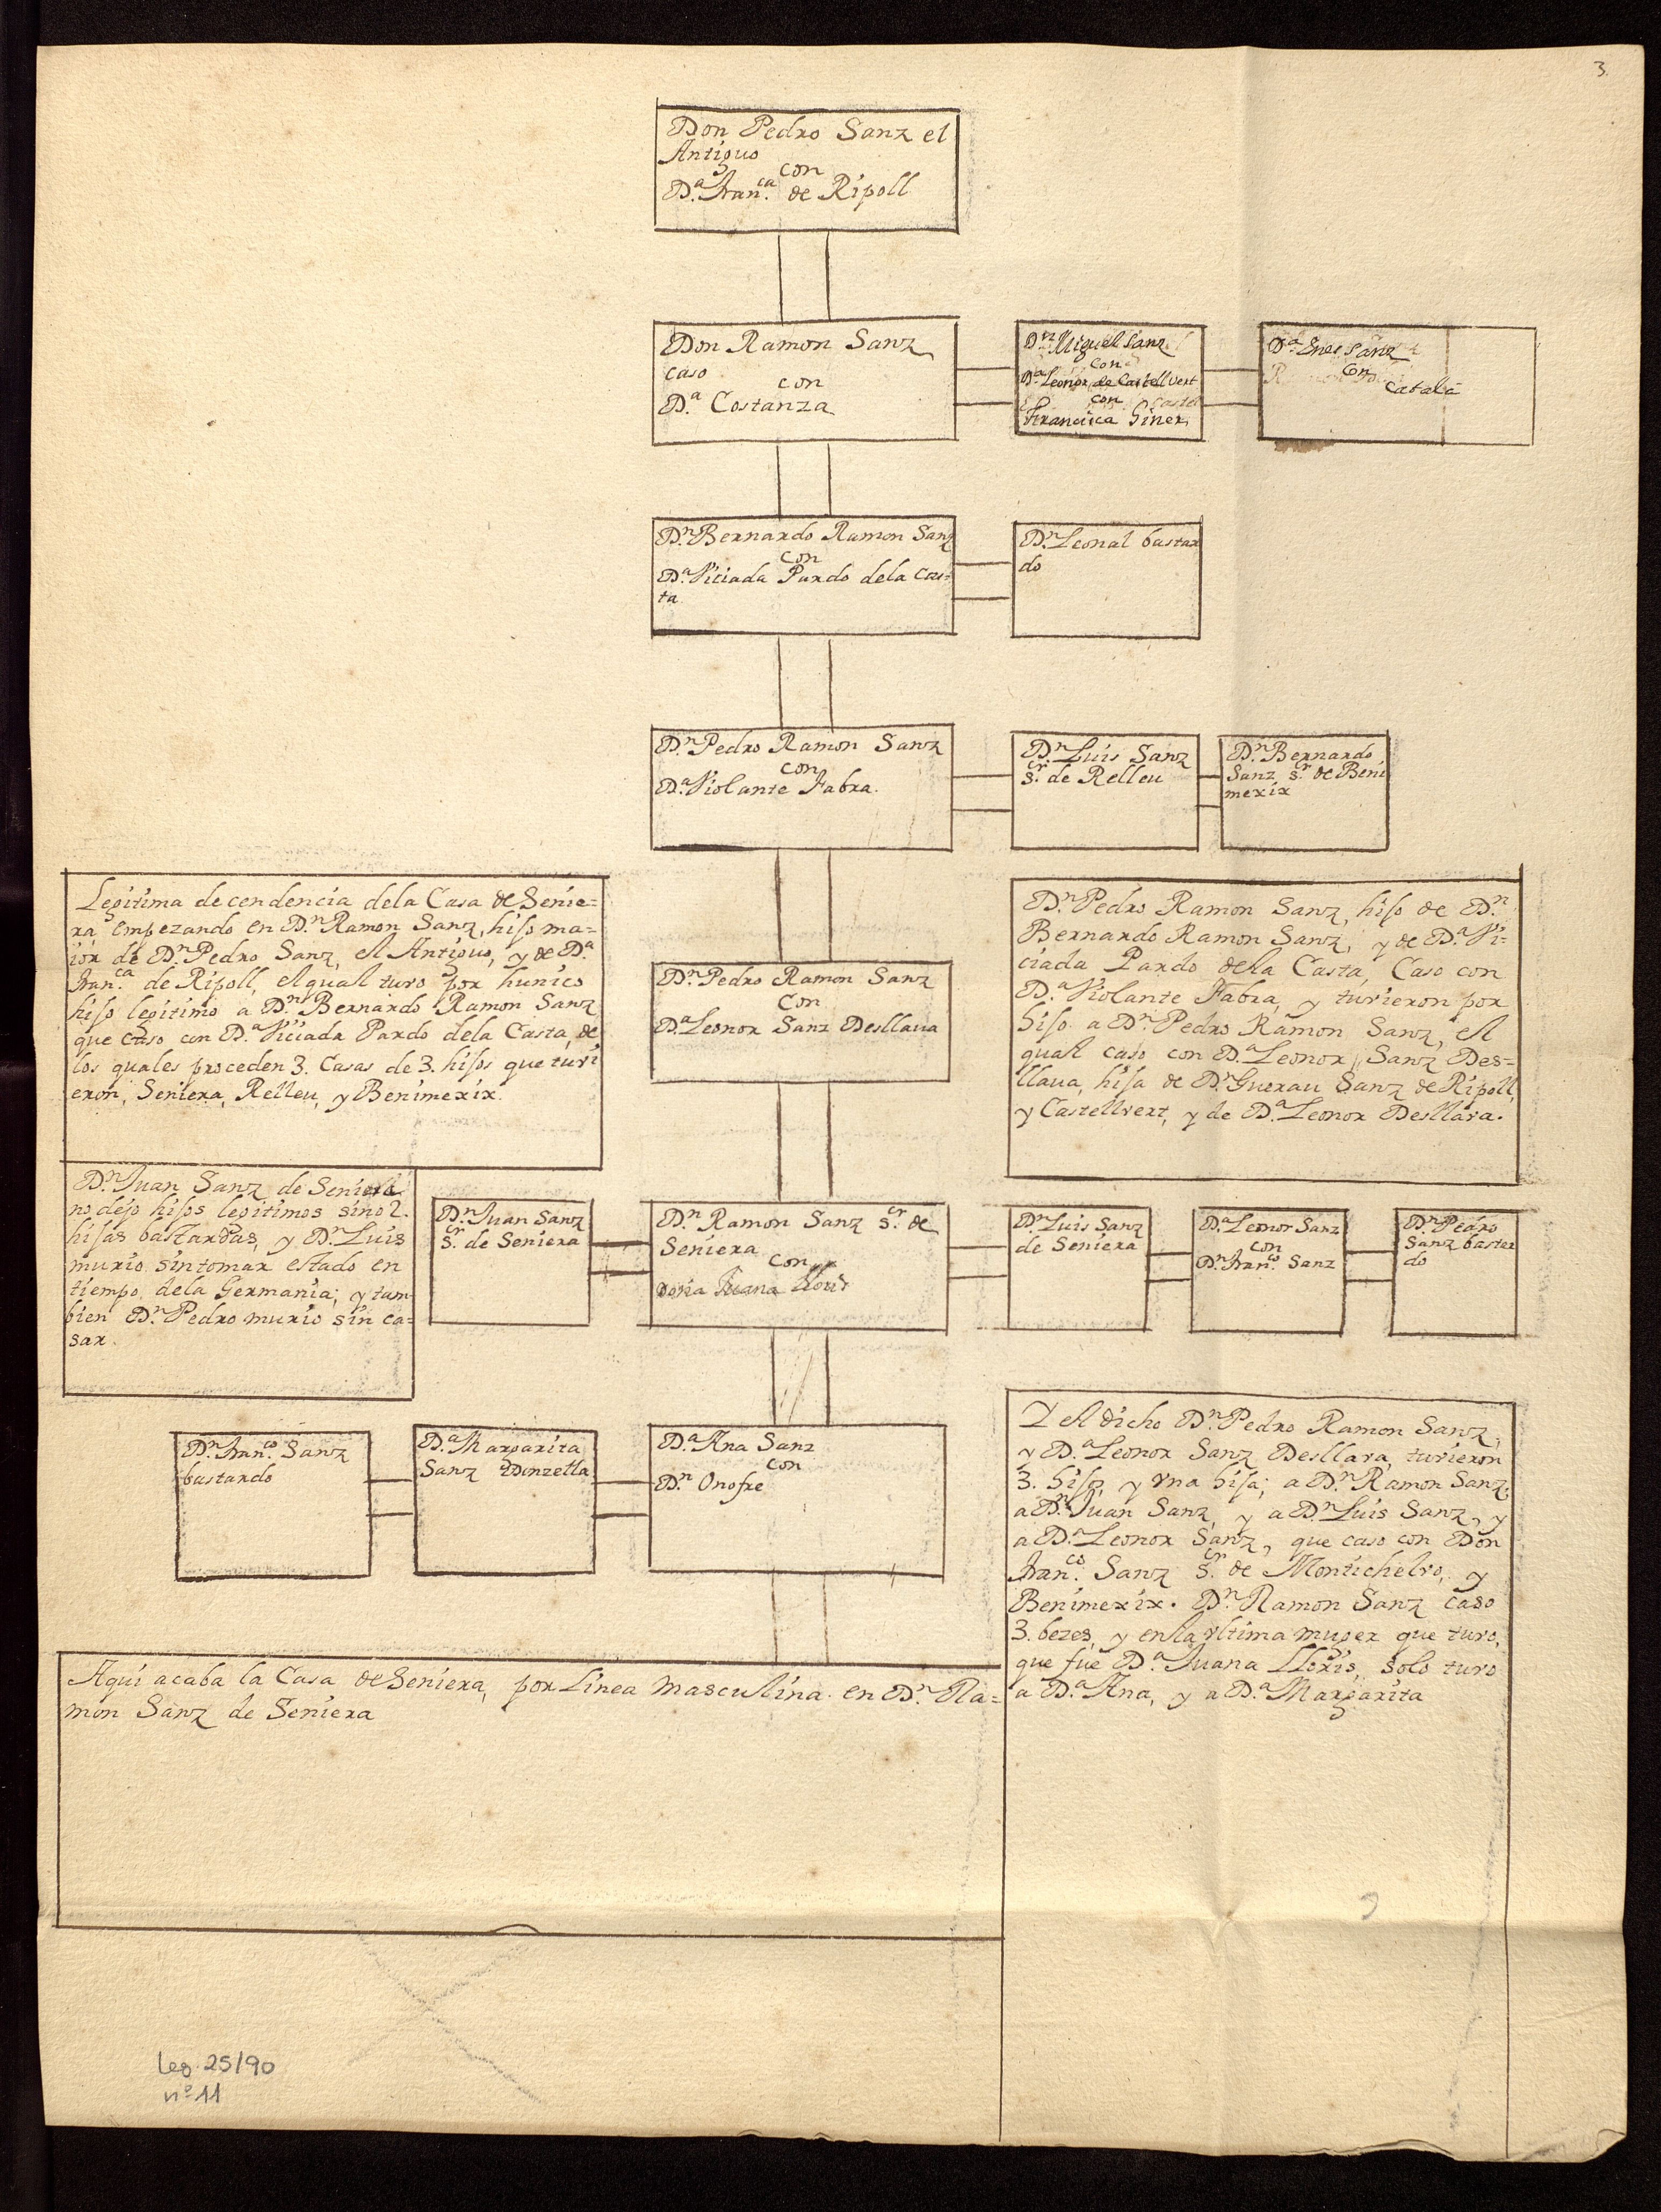 3.
Don Pedro Sanz el
Antiguo
con
D.ª Fran.ca de Ripoll
Don Ramon Sanz
caso
con
D.ª Costanza
D.n Miguel Sanz
con
D.ª Leonor de Castellvert
con
Francisca Giner
D.ª Ines Sanz
con
Catalá
D.n Bernardo Ramon Sanz
con
D.ª Viciada Pardo dela Cas=
ta
D.n Leonal bastar
do
D.n Pedro Ramon Sanz
con
D.ª Violante Fabra.
D.n Luis Sanz
s.r de Relleu
D.n Bernardo
Sanz s.r de Beni
mexix
Legitima decendencia dela Casa de Senie=
ra empezando en D.n Ramon Sanz, hijo ma=
ior de D.n Pedro Sanz, el Antiguo, y de D.ª
Fran.ca de Ripoll, el qual tuvo por hunico
hijo legitimo a D.n Bernardo Ramon Sanz
que caso con D.ª Viciada Pardo dela Casta, de
los quales proceden 3. Casas de 3. hijos que tuvi
eron, Seniera, Relleu, y Benimexix.
D.n Pedro Ramon Sanz
con
D.ª Leonor Sanz Desllaua
D.n Pedro Ramon Sanz, hijo de D.n
Bernardo Ramon Sanz, y de D.ª Vi=
ciada Pardo dela Casta, Caso con
D.ª Violante Fabra, y tuvieron por
hijo a D.n Pedro Ramon Sanz, el
qual caso con D.ª Leonor Sanz Des=
llaua, hija de D.n Guerau Sanz de Ripoll,
y Castellvert, y de D.ª Leonor Desllava.
D.n Juan Sanz de Seniera
no dejo hijos legitimos sino 2.
hijas bastardas, y D.n Luis
murio sin tomar estado en
tiempo dela Germania; y tam
bien D.n Pedro murio sin ca=
sar.
D.n Juan Sanz
s.r de Seniera
D.n Ramon Sanz s.r de
Seniera
con
doña Juana Lloris
D.n Luis Sanz
de Seniera
D.ª Leonor Sanz
con
D.n Fran.co Sanz
D.n Pedro
Sanz baster
do
D.n Fran.co Sanz
bastardo
D.ª Margarita
Sanz Donzella
D.ª Ana Sanz
con
D.n Onofre
Y el dicho D.n Pedro Ramon Sanz,
y D.ª Leonor Sanz Desllava, tuvieron
3. hijos, y vna hija; a D.n Ramon Sanz,
a D.n Juan Sanz, y a D.n Luis Sanz, y
a D.ª Leonor Sanz, que caso con Don
Fran.co Sanz s.r de Montichelvo, y
Benimexix. D.n Ramon Sanz caso
3. bezes, y en la vltima muger que tuvo,
que fue D.ª Juana Lloris, solo tuvo
a D.ª Ana, y a D.ª Margarita
Aqui acaba la Casa de Seniera, por Linea masculina en D.n Ra=
mon Sanz de Seniera
Leg. 25/90
nº 11